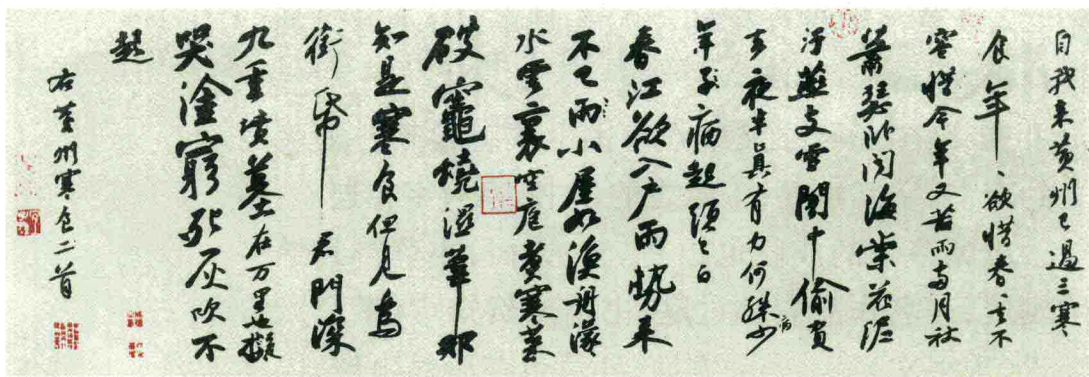 自我來黃州已過三寒
食年〻欲惜春〻去不
容惜今年又苦雨兩月秋
蕭瑟卧聞海棠花泥
汙燕支雪闇中偷負
去夜半真有力何殊少
病
年子病起須已白
春江欲入戶雨勢來
不已雨小屋如漁舟濛〻
水雲裏空庖煮寒菜
破竈燒濕葦那
知是寒食但見烏
銜帋君門深
九重墳墓在万里也擬
哭塗窮死灰吹不
起
右黃州寒食二首